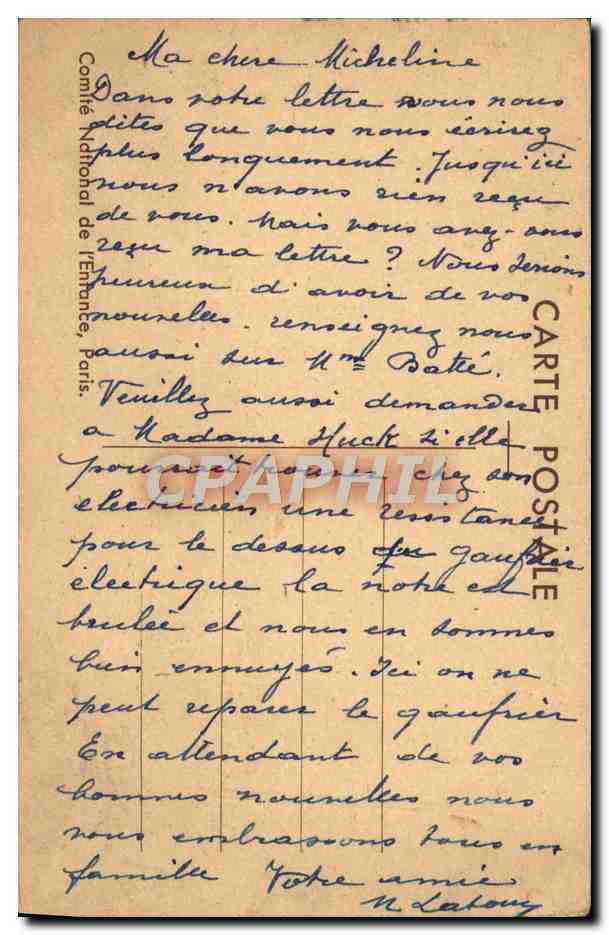 Ma chere Micheline
Dans votre lettre vous nous
dites que vous nous écrirez
plus longuement. Jusqu'ici
nous n'avons rien reçu
de vous. Mais vous avez-vous
reçu ma lettre ? Nous serions
heureux d'avoir de vos
nouvelles. renseignez nous
aussi sur Mme
Veuillez aussi demander
a Madame Huck si elle
pourrait trouver chez son
electricien une resistance
pour le dessus du gaufrier
électrique la notre est
brulée et nous en sommes
bien ennuyés. Ici on ne
peut reparer le gaufrier
En attendant de vos
bonnes nouvelles nous
vous embrassons tous en
famille Votre amie
Comité National de l'Enfance, Paris.
CARTE POSTALE
CPAPHIL